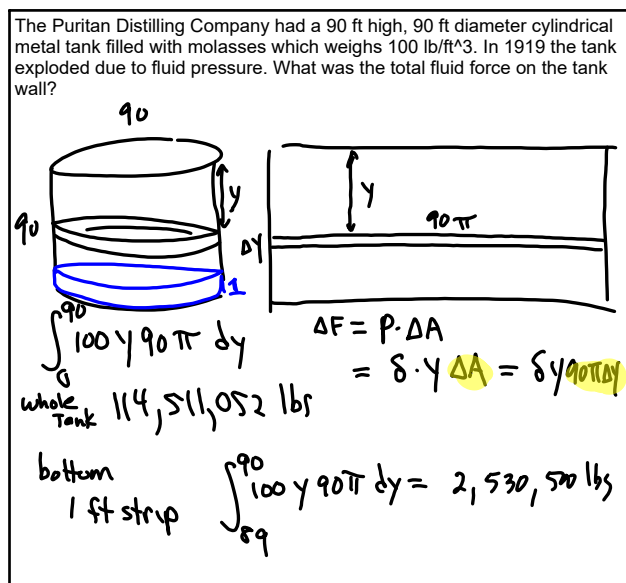 The Puritan Distilling Company had a 90 ft high, 90 ft diameter cylindrical
metal tank filled with molasses which weighs 100 lb/ft^3. In 1919 the tank
exploded due to fluid pressure. What was the total fluid force on the tank
wall?
90
y
y
90
90π
Δy
1
∫₀⁹⁰ 100 y 90 π dy
ΔF = P·ΔA
= δ·y ΔA = δy90πΔy
whole Tank 114,511,052 lbs
bottom
1 ft strip
∫₈₉⁹⁰ 100 y 90π dy = 2,530,500 lbs